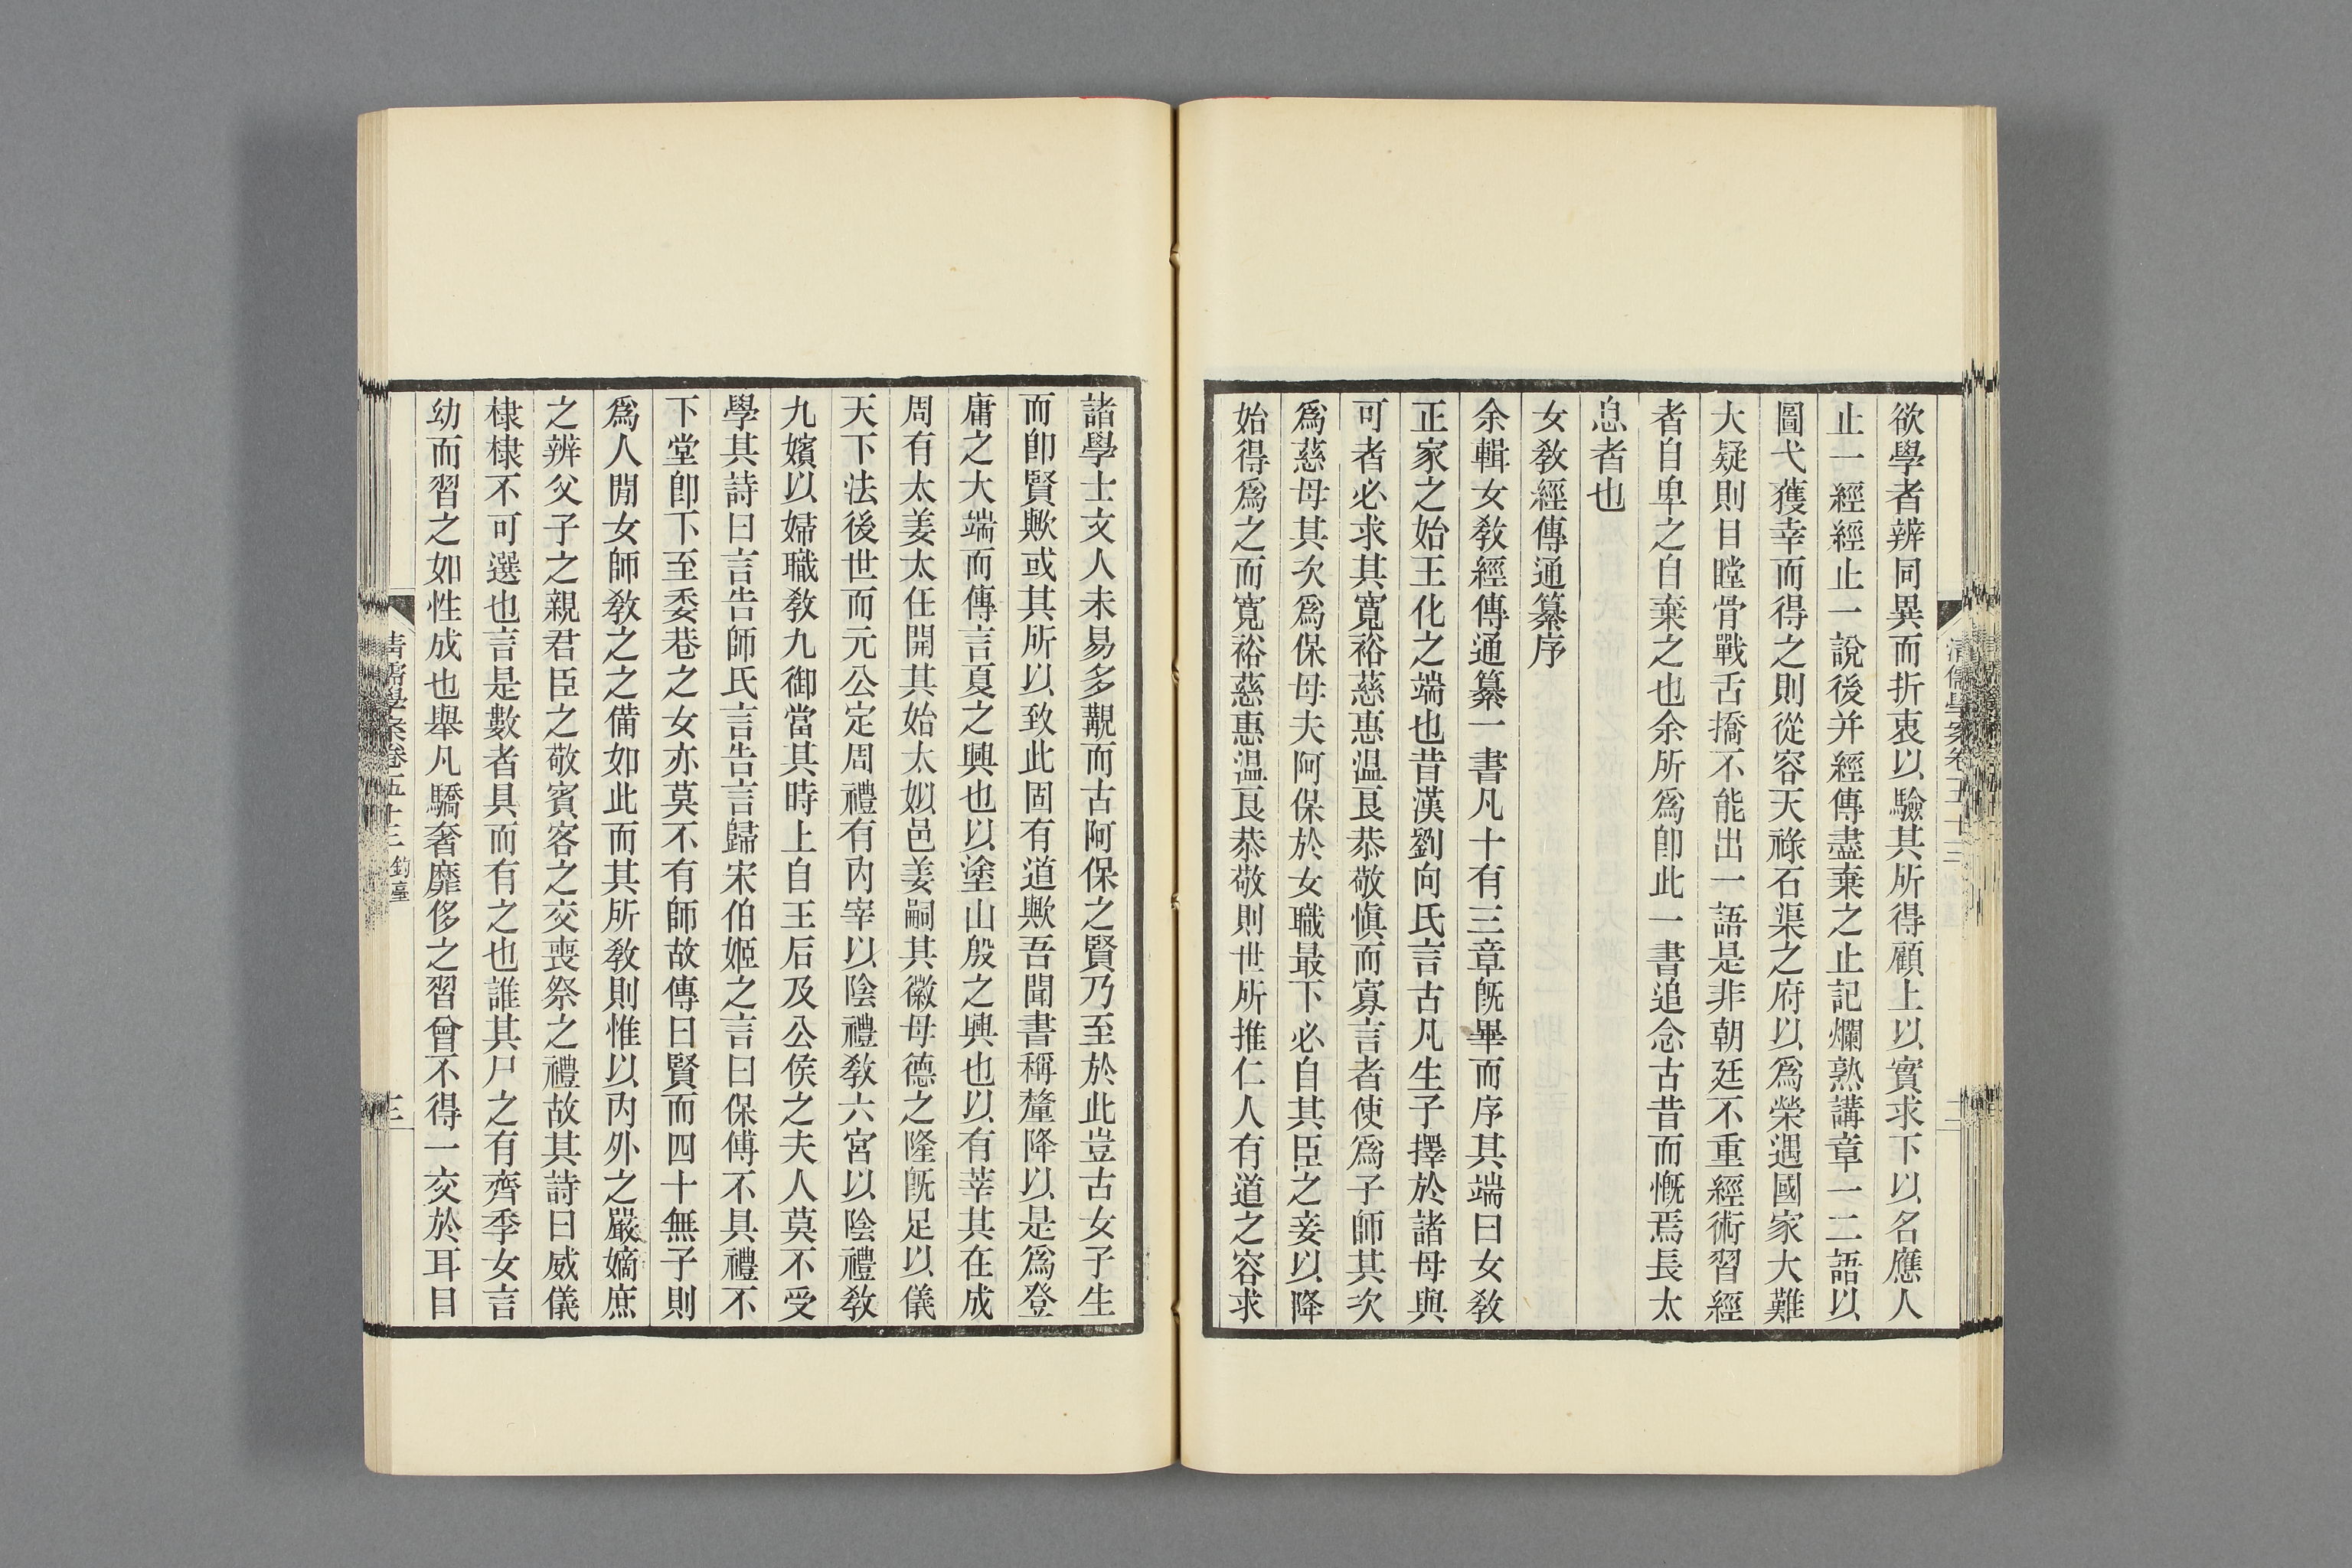 欲學者辨同異而折衷以驗其所得顧上以實求下以名應人
止一經經止一說後并經傳盡棄之止記爛熟講章一二語以
圖弋獲幸而得之則從容天祿石渠之府以爲榮遇國家大難
大疑則目瞠骨戰舌撟不能出一語是非朝廷不重經術習經
者自卑之自棄之也余所爲卽此一書追念古昔而慨焉長太
息者也
女敎經傳通纂序
余輯女敎經傳通纂一書凡十有三章旣畢而序其端曰女敎
正家之始王化之端也昔漢劉向氏言古凡生子擇於諸母與
可者必求其寬裕慈惠温良恭敬愼而寡言者使爲子師其次
爲慈母其次爲保母夫阿保於女職最下必自其臣之妾以降
始得爲之而寬裕慈惠温良恭敬則世所推仁人有道之容求
諸學士文人未易多覯而古阿保之賢乃至於此豈古女子生
而卽賢歟或其所以致此固有道歟吾聞書稱釐降以是爲登
庸之大端而傳言夏之興也以塗山殷之興也以有莘其在成
周有太姜太任開其始太姒邑姜嗣其徽母德之隆旣足以儀
天下法後世而元公定周禮有內宰以陰禮敎六宮以陰禮敎
九嬪以婦職敎九御當其時上自王后及公侯之夫人莫不受
學其詩曰言告師氏言告言歸宋伯姬之言曰保傅不具禮不
下堂卽下至委巷之女亦莫不有師故傳曰賢而四十無子則
爲人閒女師敎之之備如此而其所敎則惟以內外之嚴嫡庶
之辨父子之親君臣之敬賓客之交喪祭之禮故其詩曰威儀
棣棣不可選也言是數者具而有之也誰其尸之有齊季女言
幼而習之如性成也舉凡驕奢靡侈之習曾不得一交於耳目
清儒學案卷五十三 鈞臺
三